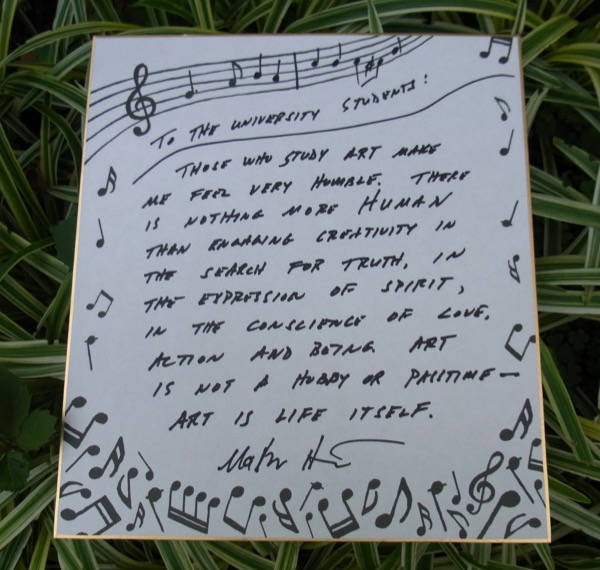 TO THE UNIVERSITY STUDENTS:
THOSE WHO STUDY ART MAKE
ME FEEL VERY HUMBLE. THERE
IS NOTHING MORE HUMAN
THAN ENGAGING CREATIVITY IN
THE SEARCH FOR TRUTH, IN
THE EXPRESSION OF SPIRIT,
IN THE CONSCIENCE OF LOVE,
ACTION AND BEING. ART
IS NOT A HOBBY OR PASSTIME —
ART IS LIFE ITSELF.